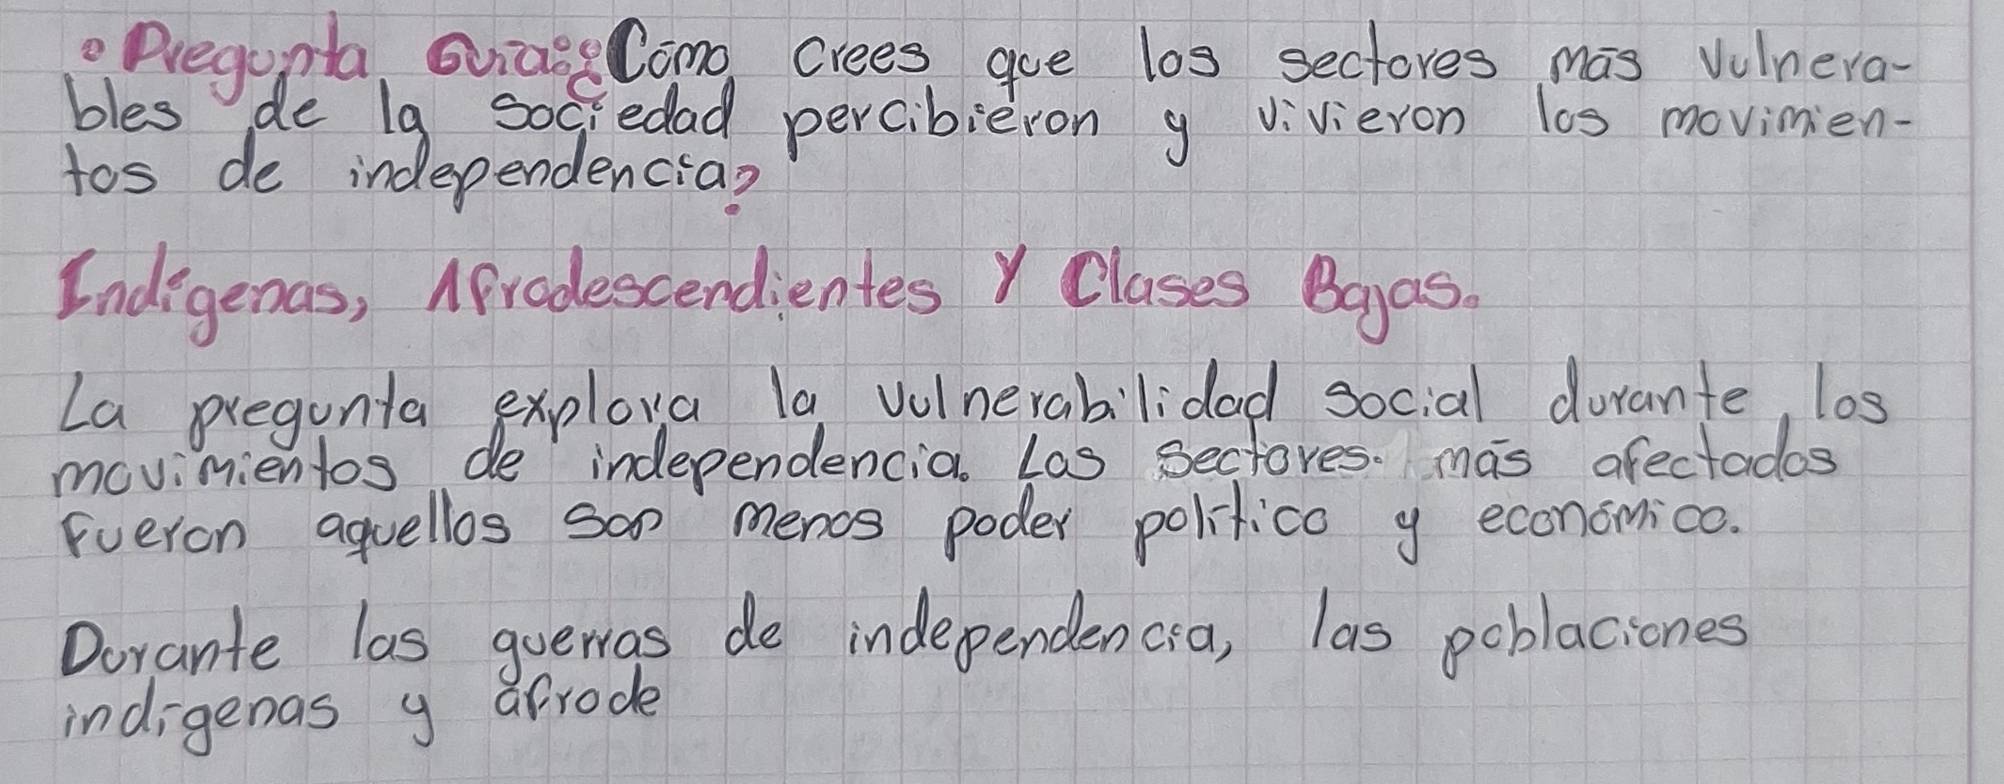 • Pregunta Guía: ¿Cómo crees que los sectores más vulnera-
bles de la sociedad percibieron y vivieron los movimien-
tos de independencia?
Indígenas, Afrodescendientes y Clases Bajas.
La pregunta explora la vulnerabilidad social durante los
movimientos de independencia. Los sectores más afectados
fueron aquellos son menos poder político y económico.
Durante las guerras de independencia, las poblaciones
indígenas y afrode